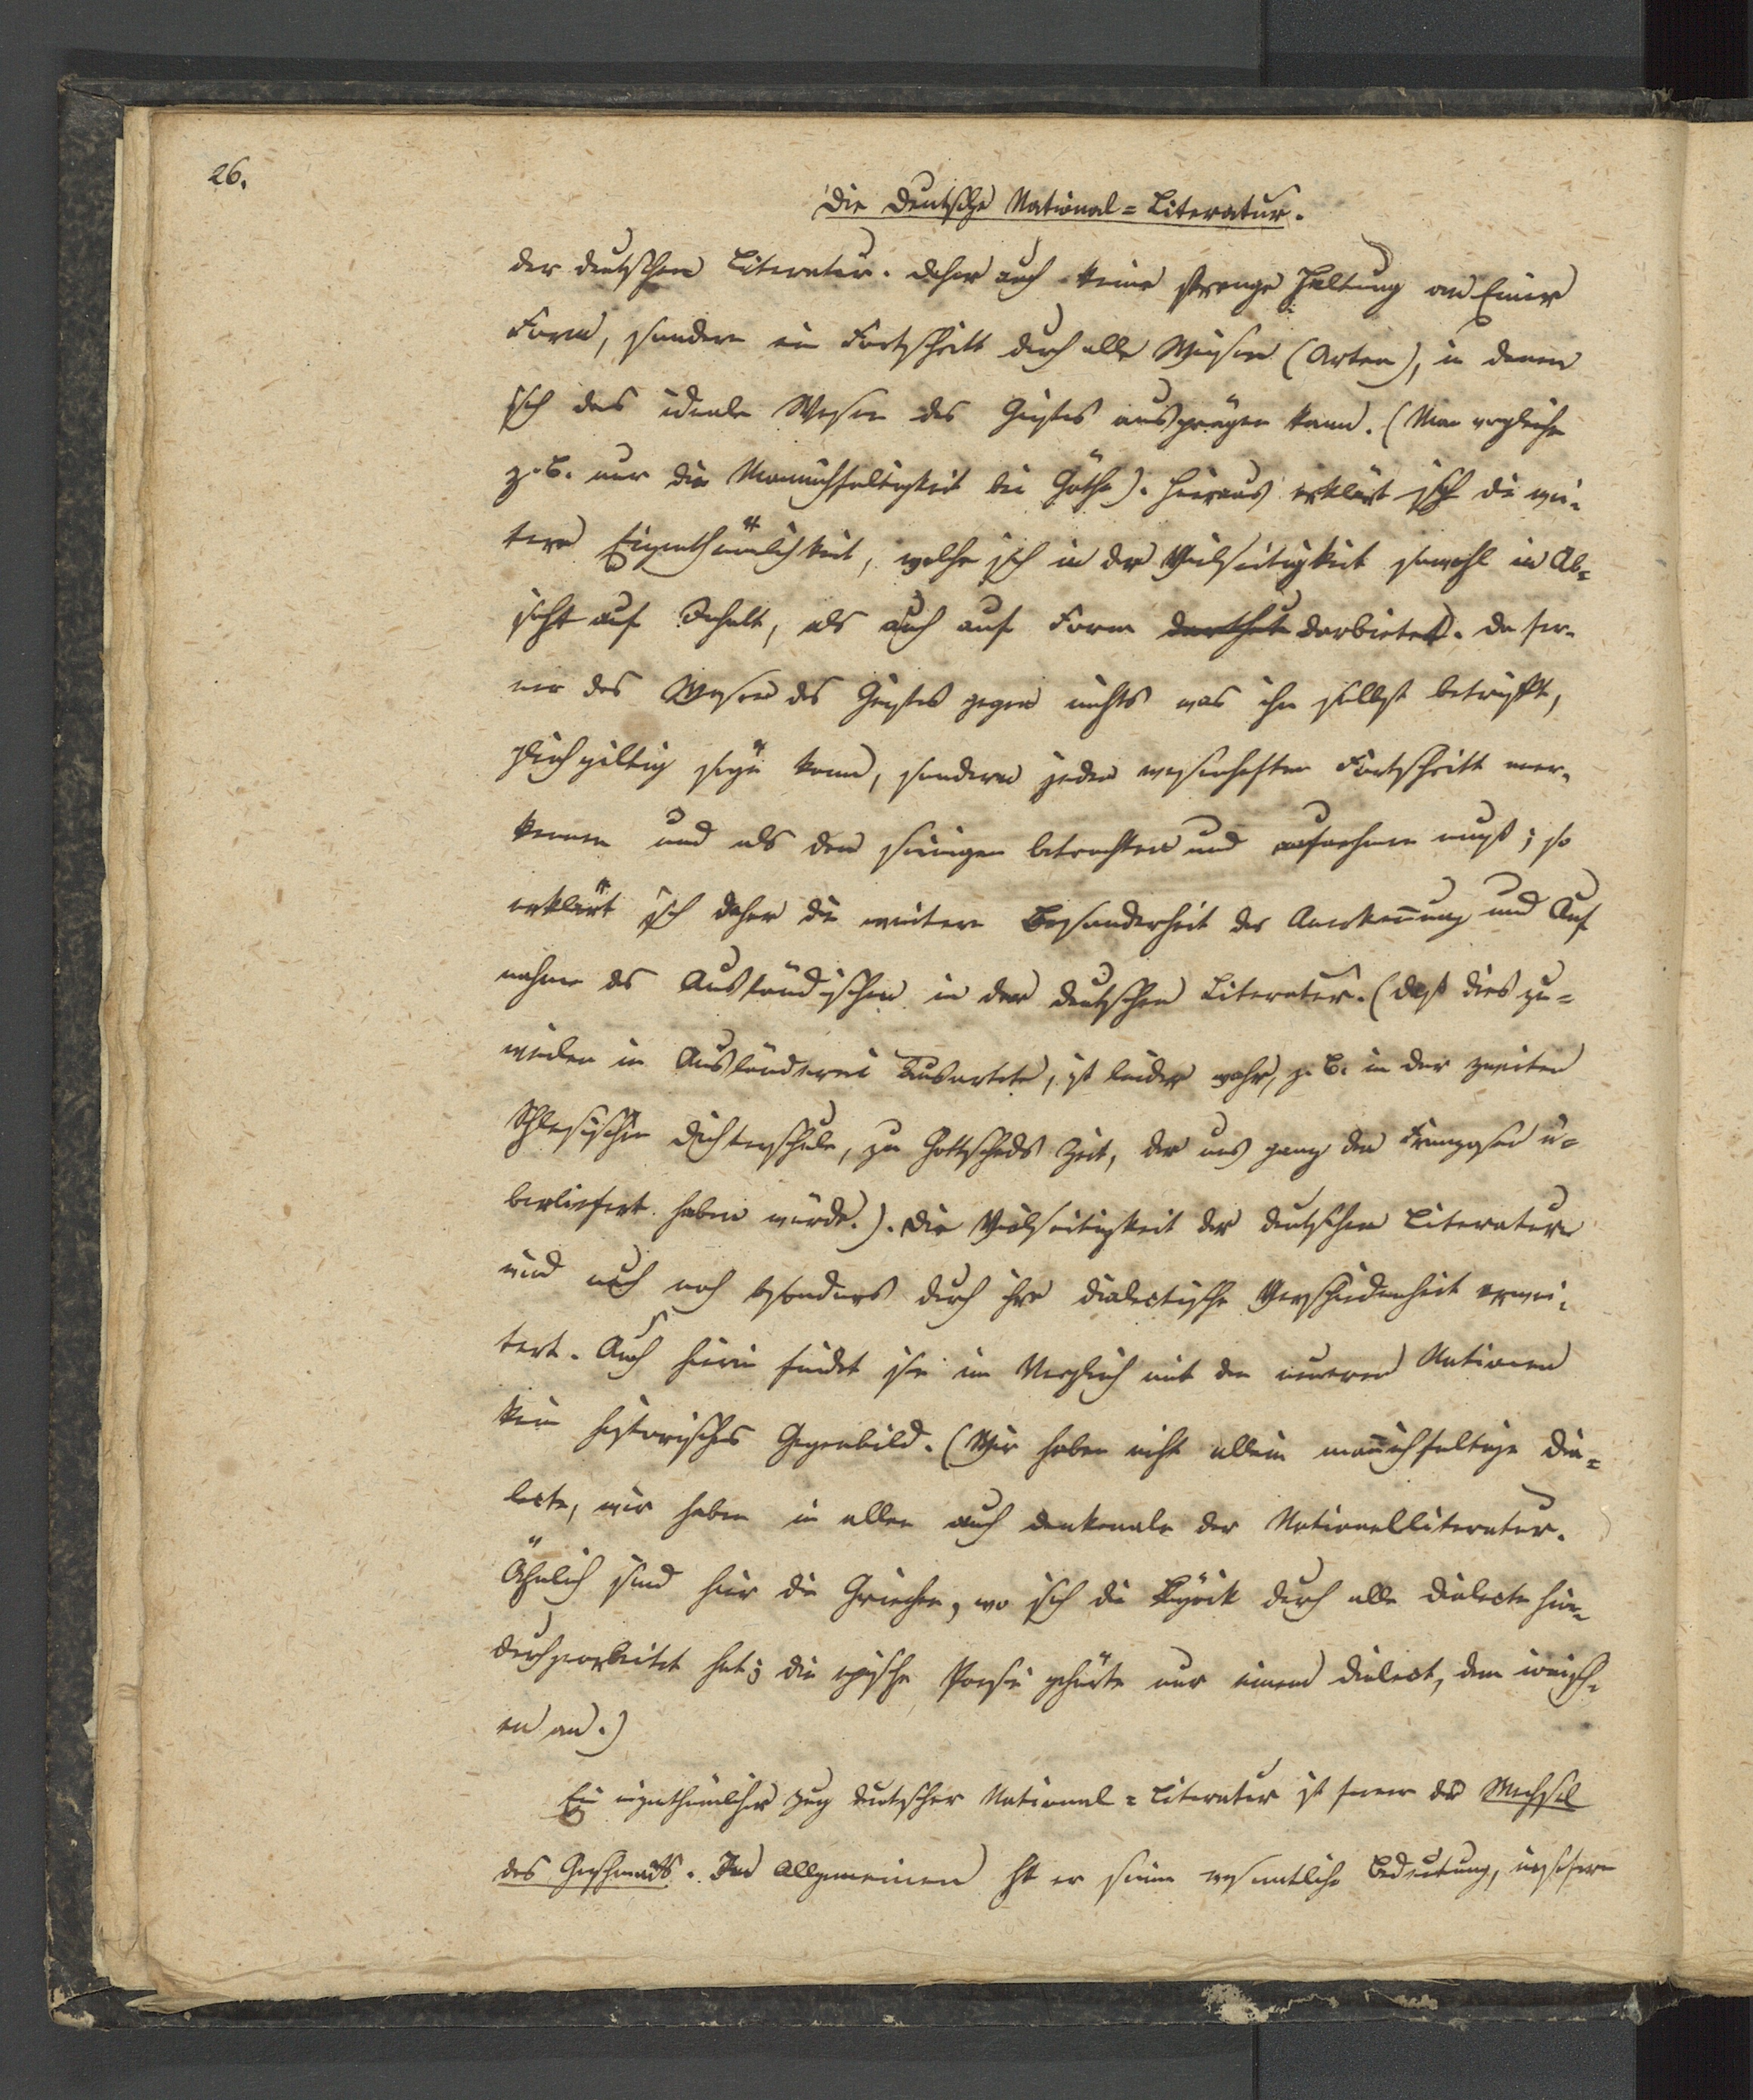 26.
Die deutsche National=Literatur.
der deutschen Literatur. Daher auch keine strenge Haltung an Einer
Form, sondern ein Fortschritt durch alle Weisen (Arten), in denen
sich das ideale Wesen des Geistes ausprägen kann. (Man vergleiche
z. B. nur die Mannichfaltigkeit bei Göthe). Hieraus erklärt sich die wei-
tere Eigenthümlichkeit, welche sich in der Vielseitigkeit sowohl in Ab=
sicht auf Inhalt, als auch auf Form darthut darbietet. Da fer-
ner das Wesen des Geistes gegen nichts was ihn selbst betrifft,
gleichgiltig seyn kann, sondern jeden wesenhaften Fortschritt aner-
kennen und als den seinigen betrachten und aufnehmen muß; so
erklärt sich daher die weitere Besonderheit der Anerkennung und Auf
nahme des Ausländischen in der deutschen Literatur. (Daß dies zu=
weilen in Ausländerei ausartete, ist leider wahr, z. B. in der zweiten
Schlesischen Dichterschule, zu Gottscheds Zeit, der uns ganz den Franzosen ü=
berliefert haben würde.). Die Vielseitigkeit der deutschen Literatur
wird auch noch besonders durch ihre dialectische Verschiedenheit erwei-
tert. Auch hierin findet sie im Vergleich mit den neueren Nationen
kein historisches Gegenbild. (Wir haben nicht allein mannichfaltige Dia=
lecte, wir haben in allen auch Denkmale der Nationalliteratur.
Ähnlich sind hier die Griechen, wo sich die Lyrik durch alle Dialecte hin-
durchgearbeitet hat; die epische Poesie gehörte nur einem Dialect, dem ionisch-
en an.)
Ein eigenthümlicher Zug deutscher National=Literatur ist ferner der Wechsel
des Geschmacks. Im Allgemeinen hat er seine wesentliche Bedeutung, insofern